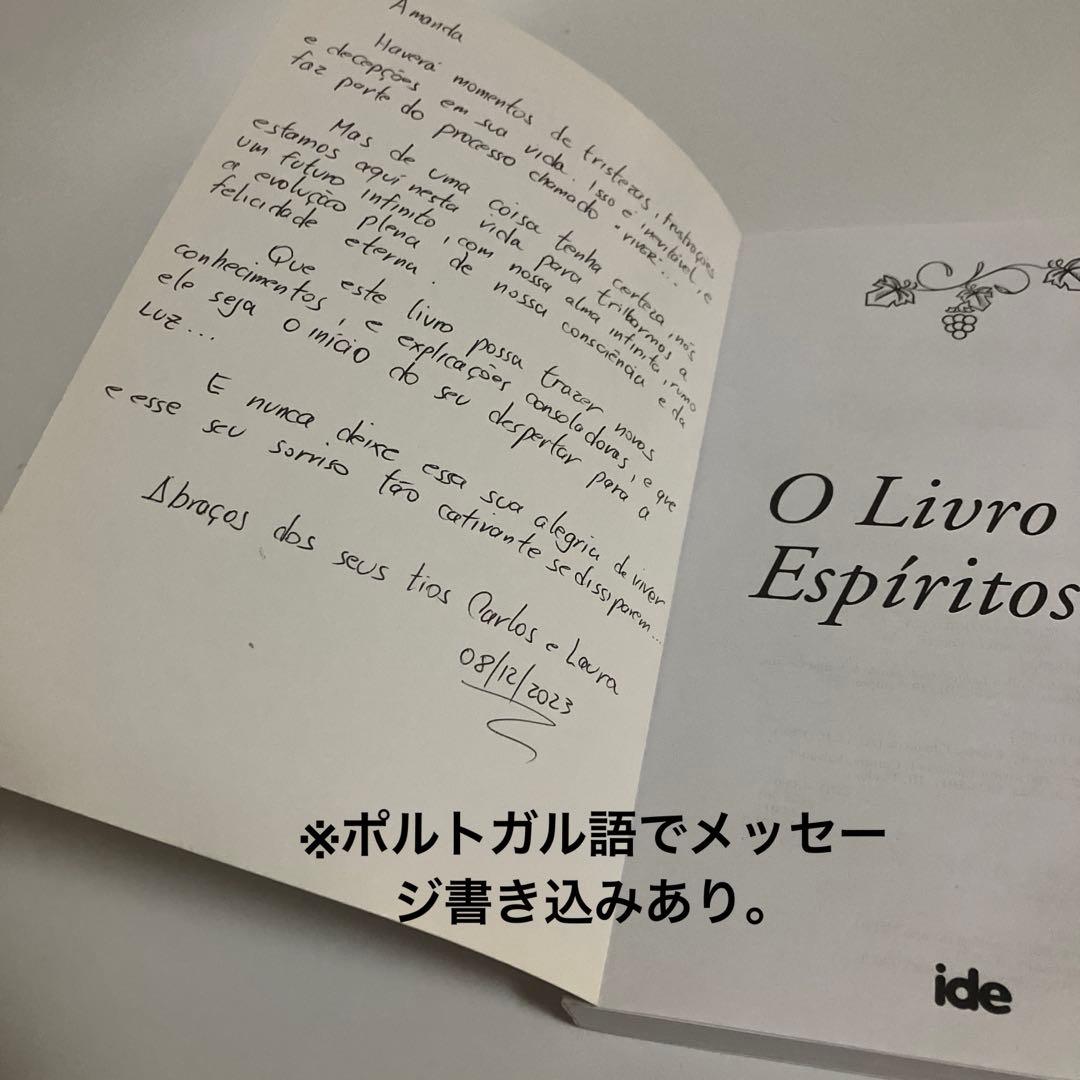 Amanda
Haverá momentos de tristezas, frustrações
e decepções em sua vida. Isso é inevitável, e
faz parte do processo chamado "VIVER"...
Mas de uma coisa tenha certeza, nós
estamos aqui nesta vida para trilharmos a
um futuro infinito, com nossa alma infinita, rumo
a evolução plena de nossa consciência e da
felicidade eterna.
Que este livro possa trazer novos
conhecimentos, e explicações consoladoras, e que
ele seja o início do seu despertar para a
LUZ...
E nunca deixe essa sua alegria de viver
e esse seu sorriso tão cativante se dissiparem...
Abraços dos seus tios Carlos e Laura
08/12/2023
O Livro
Espíritos
ide
※ポルトガル語でメッセー
ジ書き込みあり。